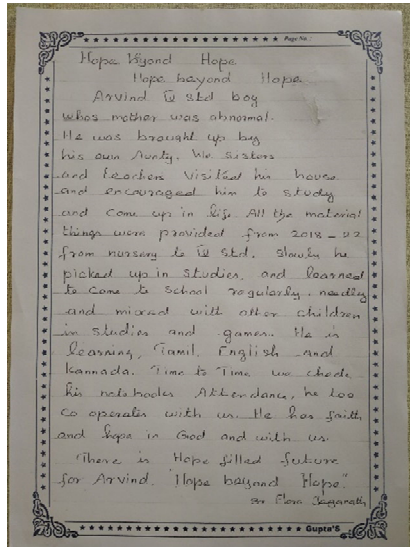 Page No.:
Hope Byond Hope
Hope beyond Hope
Arvind V std boy
whos mother was abnormal.
He was brought up by
his own Aunty. We sisters
and teachers visited his house
and encouraged him to study
and come up in life. All the material
things were provided from 2018-22
from nursery to V std. Slowly he
picked up in studies, and learned
to come to school regularly, needly
and mixed with other children
in studies and games. He is
learning, Tamil, English and
kannada. Time to Time we check
his notebooks Attendance, he too
co operates with us. He has faith
and hope in God and with us.
There is Hope filled future
for Arvind. "Hope beyond Hope".
Sr Flora Jaganath
Gupta'S